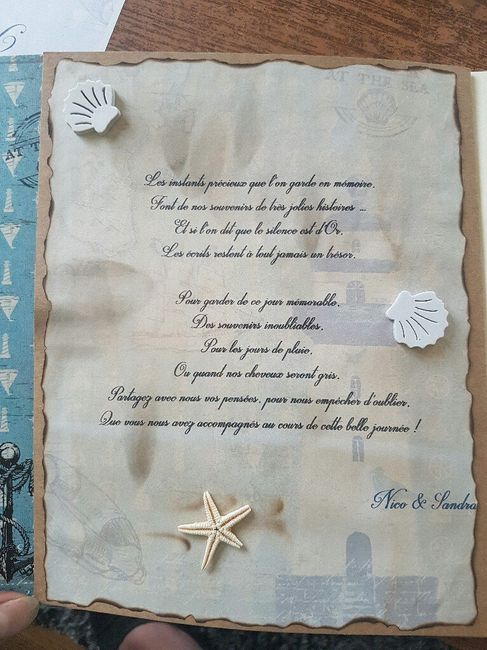 AT THE SEA
Les instants précieux que l'on garde en mémoire,
Font de nos souvenirs de très jolies histoires ...
Et si l'on dit que le silence est d'Or,
Les écrits restent à tout jamais un trésor.
Pour garder de ce jour mémorable,
Des souvenirs inoubliables,
Pour les jours de pluie,
Ou quand nos cheveux seront gris,
Partagez avec nous vos pensées, pour nous empêcher d'oublier,
Que vous nous avez accompagnés au cours de cette belle journée !
Nico & Sandra